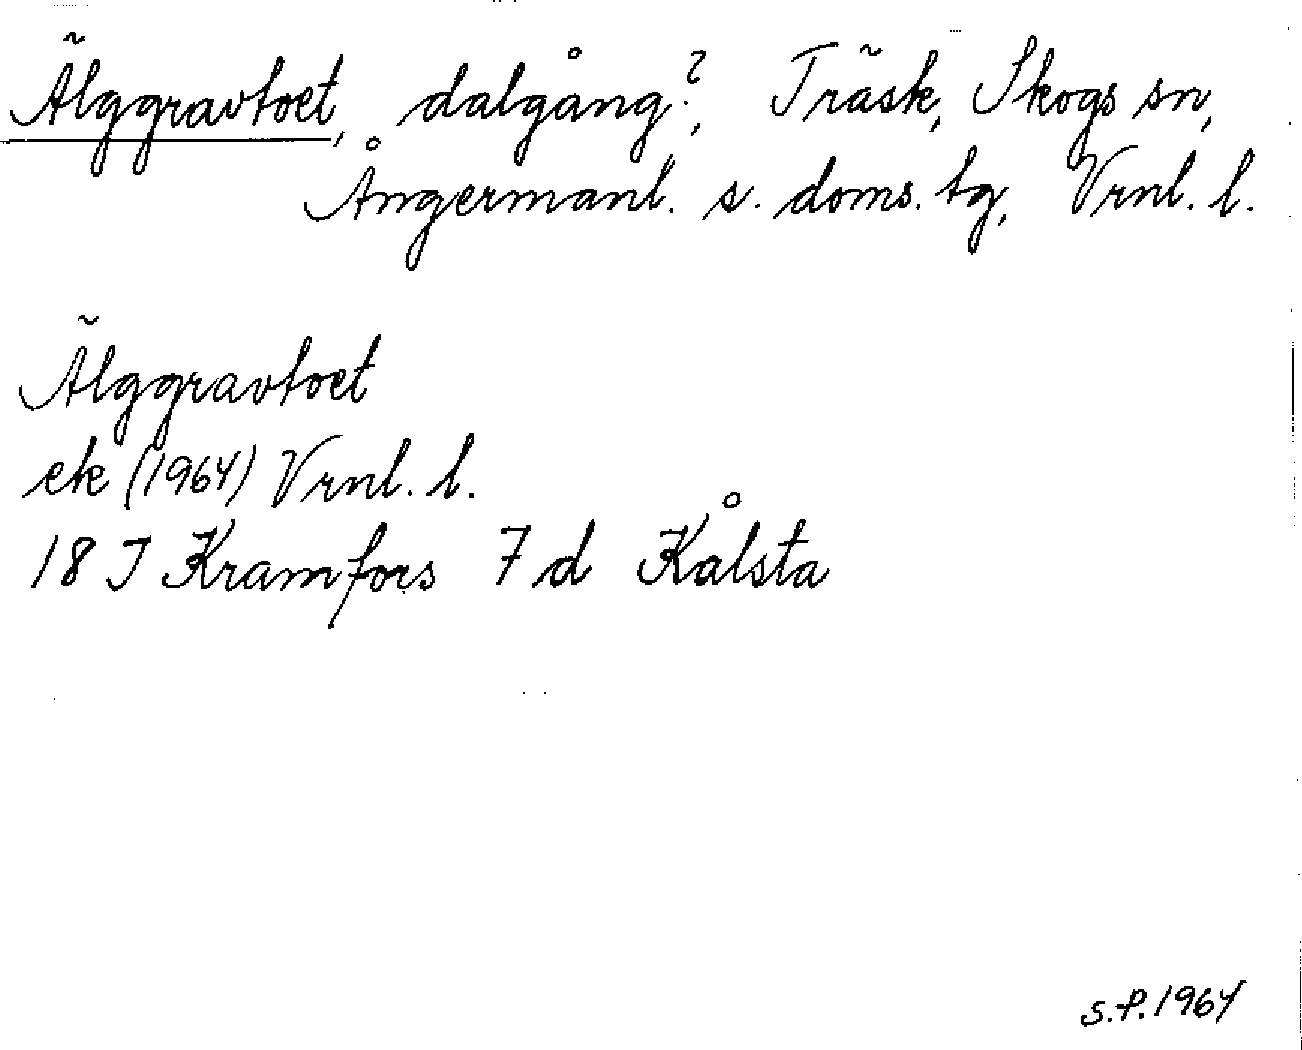 Älggravtoet, dalgång?, Träsk, Skogs sn,
Ångermanl. s. doms. tg, Vrnl. l.
Älggravtoet
ek (1964) Vrnl. l.
18 J Kramfors 7 d Kålsta
S.P. 1964